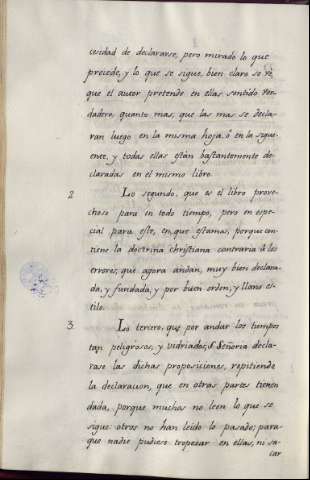 cesidad de declararse, pero mirado lo que
precede, y lo que se sigue, bien claro se vé,
que el autor pretende en ellas sentido ver-
dadero, quanto mas, que las mas se decla-
ran luego en la misma hoja, ó en la sigui-
ente, y todas ellas están bastantemente de-
claradas en el mismo libro.
2 Lo segundo, que es el libro prove-
choso para en todo tiempo, pero en espe-
cial para este, en que estamos, porque con-
tiene la doctrina christiana contraria á los
errores, que agora andan, muy bien declara-
da, y fundada, y por buen orden, y llano es-
tilo.
3 Lo tercero, que por andar los tiempos
tan peligrosos, y vidriados, S. Señoria decla-
rase las dichas proposiciones, repitiendo
la declaracion, que en otras partes tienen
dada, porque muchos no leen lo que se
sigue otros no han leido lo pasado; para-
que nadie pudiese tropezar en ellas, ni sa-
car